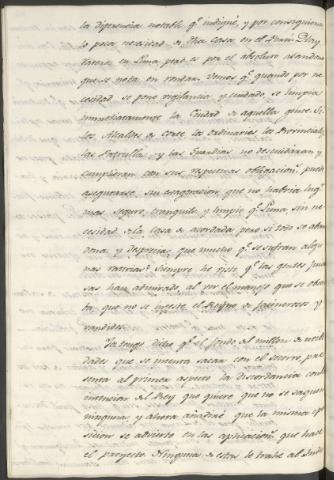 la diferencia notable qe indiqué, y por consiguiente
la poca necesidad de dha Casa en el
en Lima, pende es por el absoluto abandono
que se nota en rondar. Vemos qe quando por ne-
cesidad se pone vigilancia y cuidado se limpia
inmediatamente la Ciudad de aquella gente. Si
los Alcaldes de corte los ordinarios los Provinciales
las Patrullas, y las Guardias no descuidaran y
cumplieran con sus respectivas obligaciones, puede
asegurarse sin exageracion que no habria lugar
mas seguro, tranquilo y limpio qe Lima, sin ne-
cesidad de la Casa de acordada; pero si todo se aban-
dona y desprecia, que mucho qe se sufran algu-
nas raterias? Siempre he visto qe las gentes juicio-
sas han admirado al ver el manejo que se obser-
ba que no se infeste el Reyno de facinerosos y
vandidos.
Ya tengo dicho qe el fondo del millon de nove-
dades que se intenta sacar con el Socorro, pre-
senta al primer aspecto la discordancia con la
intencion del Rey que quiere que no se saque
ninguna; y ahora añadiré que la misma opo-
sicion se advierte en las aplicaciones, que hace
el proyecto. Ninguna de estas le trahe al Indio